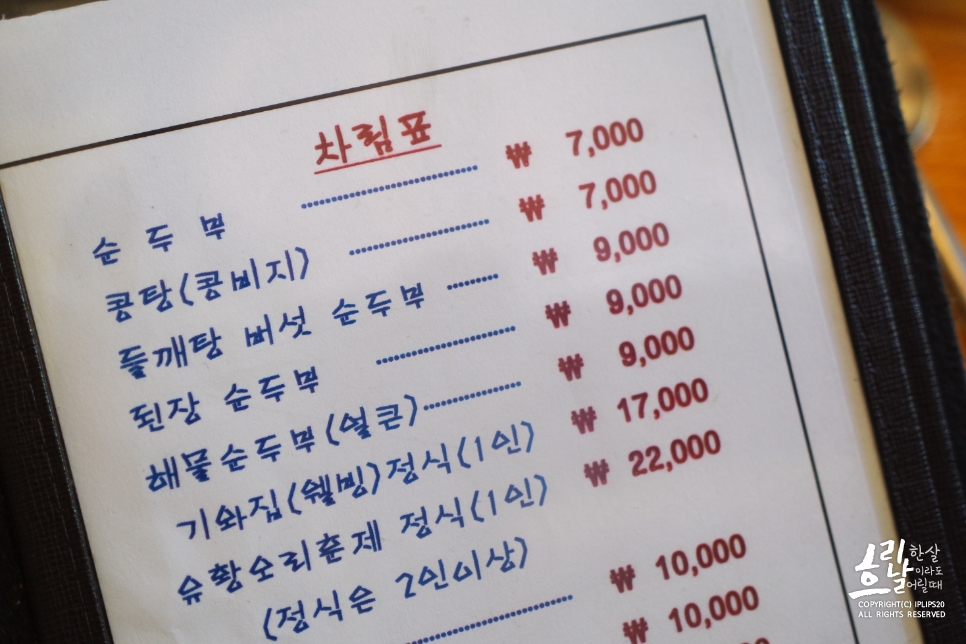 차림표
순두부 ₩ 7,000
콩탕(콩비지) ₩ 7,000
들깨탕 버섯 순두부 ₩ 9,000
된장 순두부 ₩ 9,000
해물순두부(얼큰) ₩ 9,000
기와집(웰빙)정식(1인) ₩ 17,000
유황오리훈제 정식(1인) ₩ 22,000
(정식은 2인이상)
₩ 10,000
₩ 10,000
한살
이라도
어릴때
COPYRIGHT(C) IPLIPS20
ALL RIGHTS RESERVED